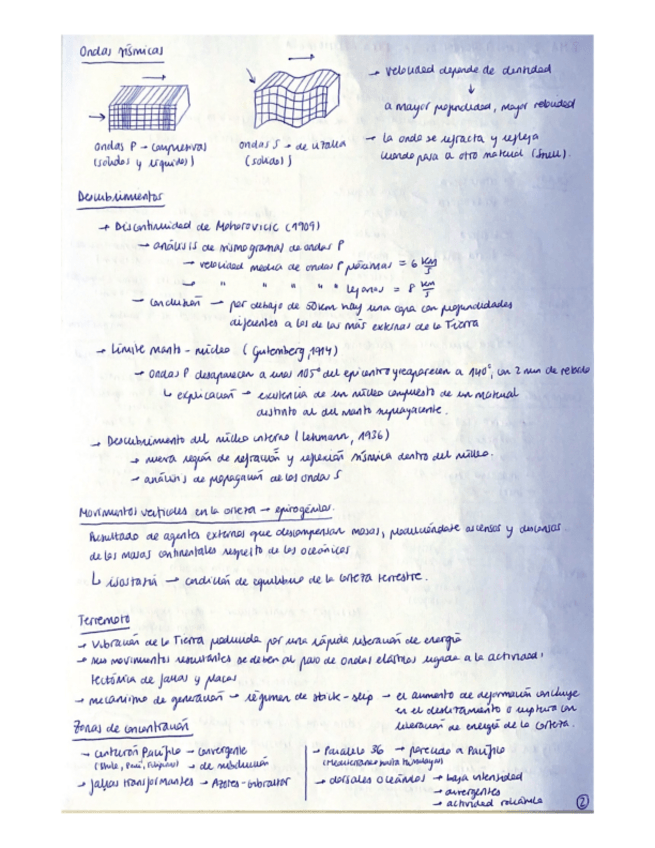 Ondas sísmicas
→ velocidad depende de densidad
↓
a mayor profundidad, mayor velocidad
ondas P → compresivas
(sólidos y líquidos)
ondas S → de cizalla
(sólidos)
→ la onda se refracta y refleja
cuando pasa a otro material (Snell).
Descubrimientos
→ Discontinuidad de Mohorovicic (1909)
→ análisis de sismogramas de ondas P
→ velocidad media de ondas P próximas = 6 km/s
→ " " " " " lejanas = 8 km/s
→ conclusión → por debajo de 50km hay una capa con profundidades
diferentes a las de las más externas de la Tierra
→ Límite manto - núcleo (Gutemberg, 1914)
→ ondas P desaparecen a unos 105° del epicentro y reaparecen a 140°, con 2 min de retardo
↳ explicación → existencia de un núcleo compuesto de un material
distinto al del manto suprayacente.
→ Descubrimiento del núcleo interno (Lehmann, 1936)
→ nueva región de refracción y reflexión sísmica dentro del núcleo.
→ análisis de propagación de las ondas S
Movimientos verticales en la corteza → epirogénicos.
Resultado de agentes externos que descompensan masas, produciéndose ascensos y descensos
de las masas continentales respecto de las oceánicas
↳ isostasia → condición de equilibrio de la corteza terrestre.
Terremoto
→ Vibración de la Tierra producida por una rápida liberación de energía
→ sus movimientos resultantes se deben al paso de ondas elásticas ligadas a la actividad
tectónica de fallas y placas
→ mecanismo de generación → régimen de stick-slip → el aumento de deformación concluye
en el deslizamiento o ruptura con
liberación de energía de la corteza.
Zonas de concentración
→ cinturón Pacífico → convergente
(Chile, Perú, Filipinas) → de subducción
→ fallas transformantes → Azores-Gibraltar
→ Paralelo 36 → parecido a Pacífico
(Mediterráneo hasta Himalayas)
→ dorsales oceánicas → baja intensidad
→ divergentes
→ actividad volcánica
2